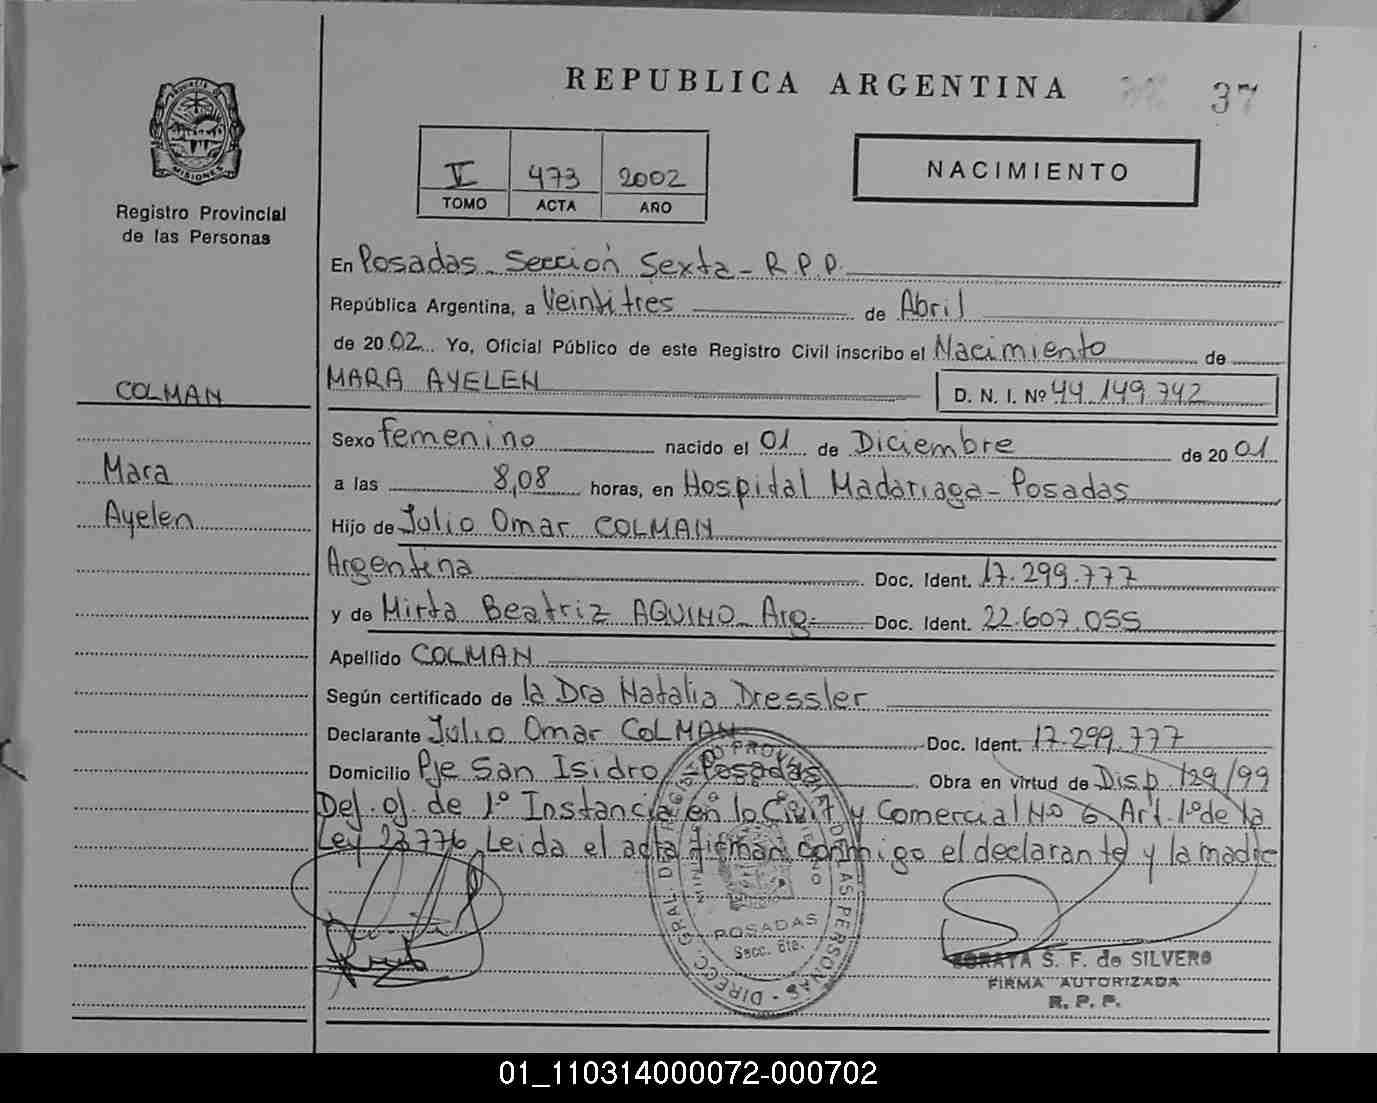 REPUBLICA ARGENTINA
37
MISIONES
Registro Provincial
de las Personas
V 473 2002
TOMO ACTA AÑO
NACIMIENTO
En Posadas - Sección Sexta - R.P.P.
República Argentina, a Veintitres de Abril
de 2002 Yo, Oficial Público de este Registro Civil inscribo el Nacimiento de
MARA AYELEN D. N. I. Nº 44.149.742
COLMAN
Mara
Ayelen
Sexo femenino nacido el 01 de Diciembre de 2001
a las 8,08 horas, en Hospital Madariaga - Posadas
Hijo de Julio Omar COLMAN
Argentina Doc. Ident. 17.299.777
y de Mirta Beatriz AQUINO - Arg. Doc. Ident. 22.607.055
Apellido COLMAN
Según certificado de la Dra Natalia Dressler
Declarante Julio Omar COLMAN Doc. Ident. 17.299.777
Domicilio Pje San Isidro - Posadas Obra en virtud de Disp. 129/99
Def. of. de 1º Instancia en lo Civil y Comercial Nº 6, Art. 1º de la
Ley 23776. Leida el acta firman conmigo el declarante y la madre
POSADAS
Secc. 6ta.
SORAYA S. F. de SILVERO
FIRMA AUTORIZADA
R. P. P.
01_110314000072-000702